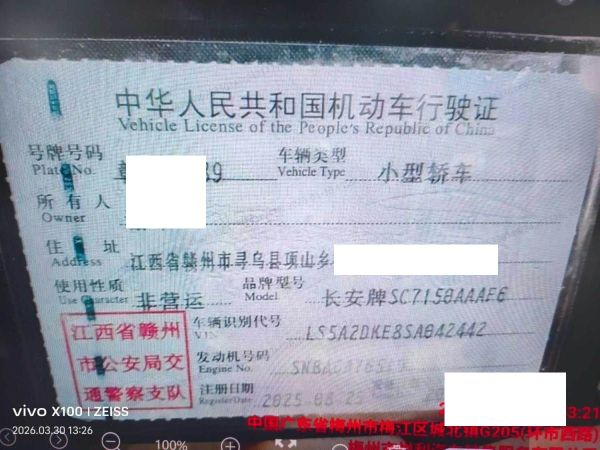 中华人民共和国机动车行驶证
Vehicle License of the People's Republic of China
号牌号码 39 车辆类型 小型轿车
Plate No. Vehicle Type
所有人
Owner
住址 江西省赣州市寻乌县项山乡
Address
使用性质 非营运 品牌型号 长安牌SC7158AAAE6
Use Character Model
江西省赣州 车辆识别代号 LS5A2DKE8SA842442
VIN
市公安局交 发动机号码
Engine No.
通警察支队 注册日期 2025-08-25
Register Date
vivo X100 | ZEISS
2026.03.30 13:26
3:21
中国广东省梅州市梅江区城北镇G205(环市西路)
100%